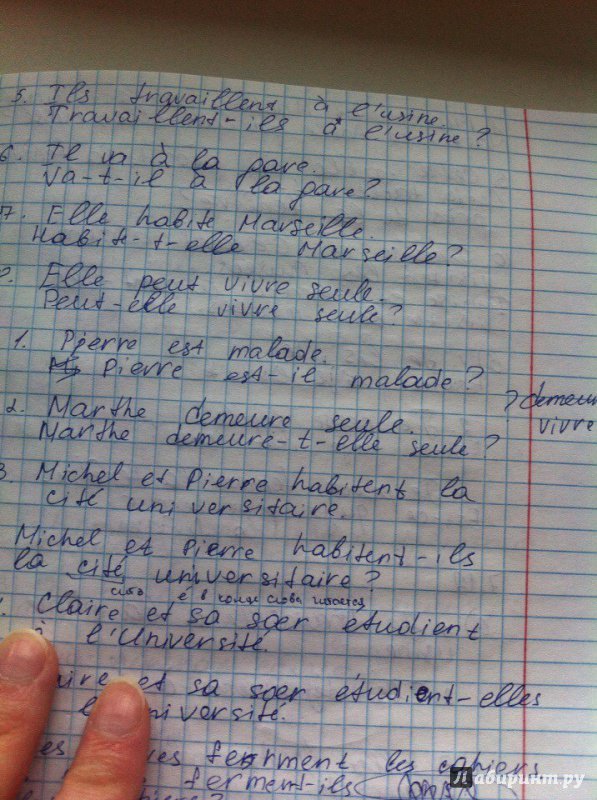 5. Ils travaillent à l'usine.
Travaillent-ils à l'usine?
6. Il va à la gare.
Va-t-il à la gare?
7. Elle habite Marseille.
Habite-t-elle Marseille?
Elle peut vivre seule.
Peut-elle vivre seule?
1. Pierre est malade.
Pierre est-il malade?
? demeur
vivre
2. Marthe demeure seule.
Marthe demeure-t-elle seule?
3 Michel et Pierre habitent la
cité universitaire.
Michel et Pierre habitent-ils
la cité universitaire?
е в конце слова читается
Claire et sa sœr etudient
à l'Université.
aire et sa sœr étudient-elles
l'Université.
ferment les cahiers
ferment-ils
Лабиринт.ру